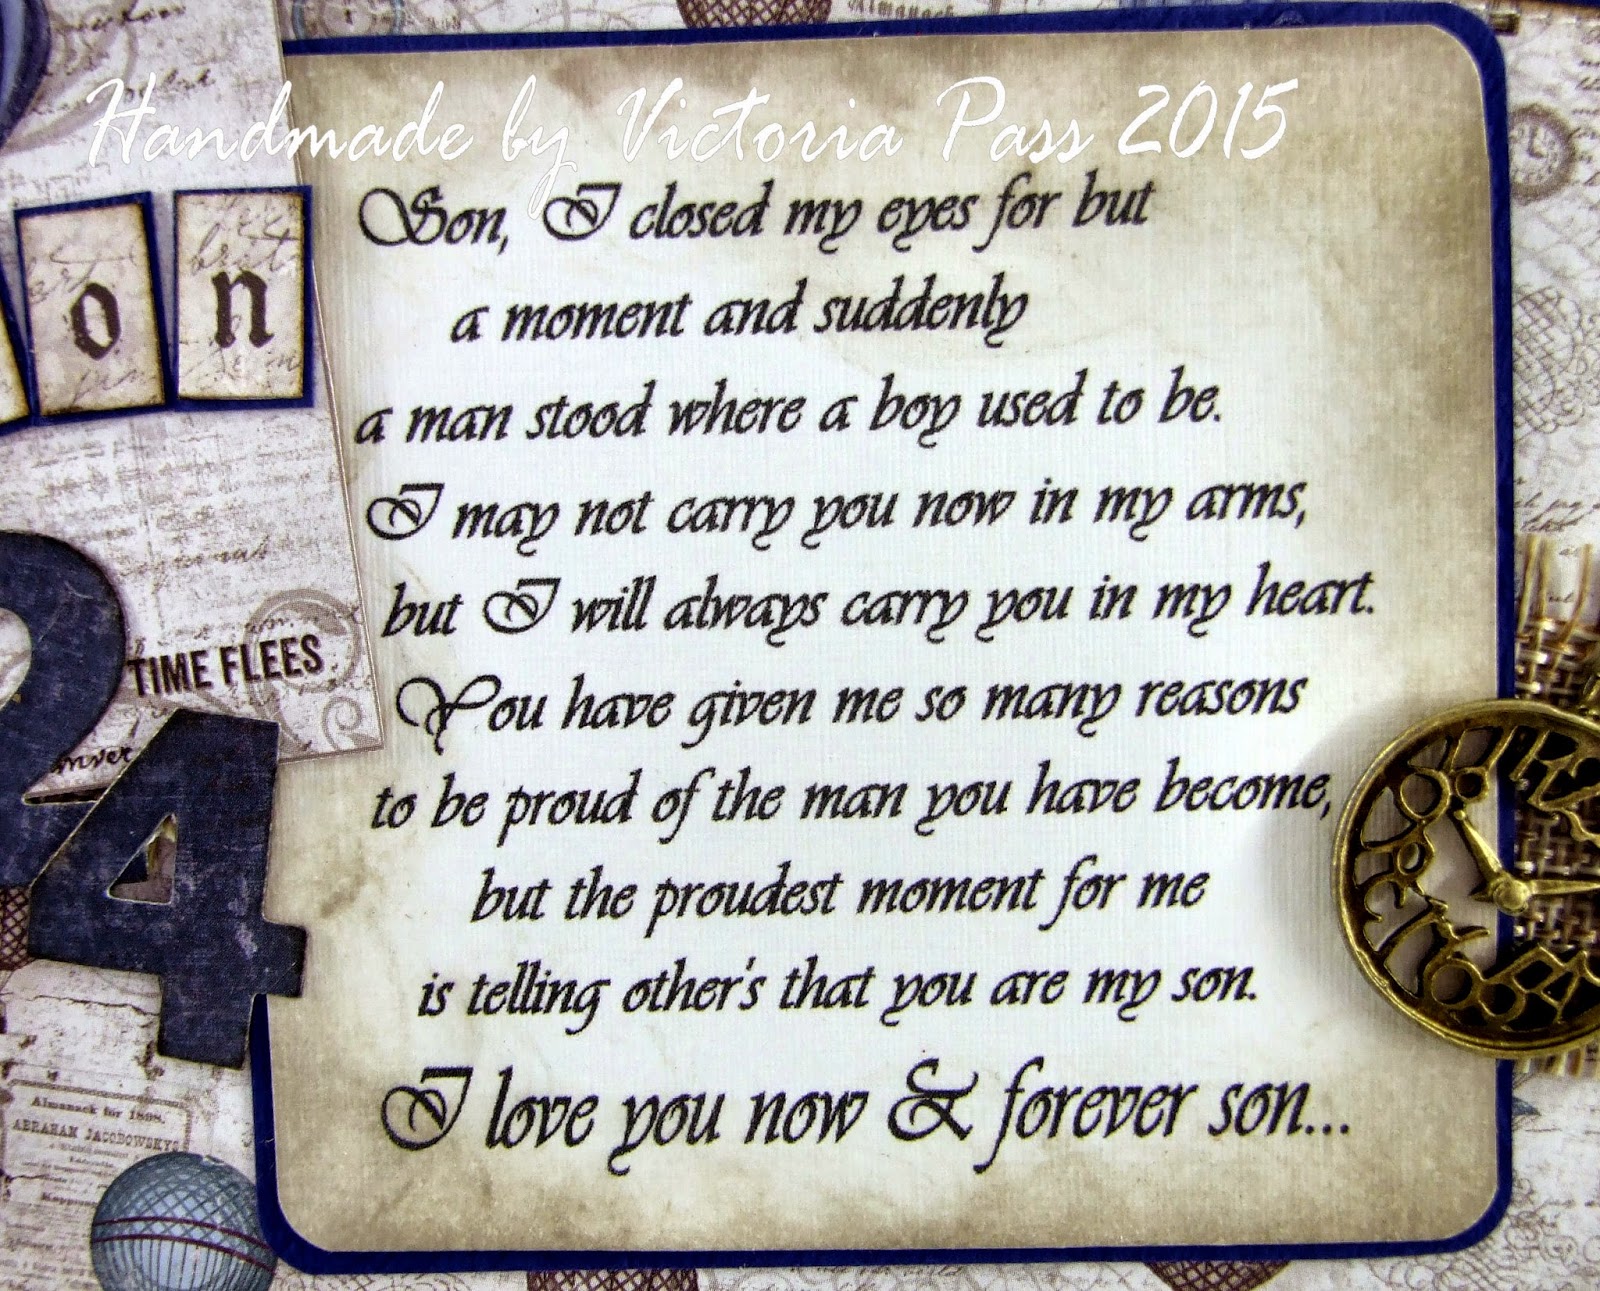 Handmade by Victoria Pass 2015
Son, I closed my eyes for but
a moment and suddenly
a man stood where a boy used to be.
I may not carry you now in my arms,
but I will always carry you in my heart.
You have given me so many reasons
to be proud of the man you have become,
but the proudest moment for me
is telling other's that you are my son.
I love you now & forever son...
on
TIME FLEES
24
Almanack for 1898.
ABRAHAM JACOBOWSKYS